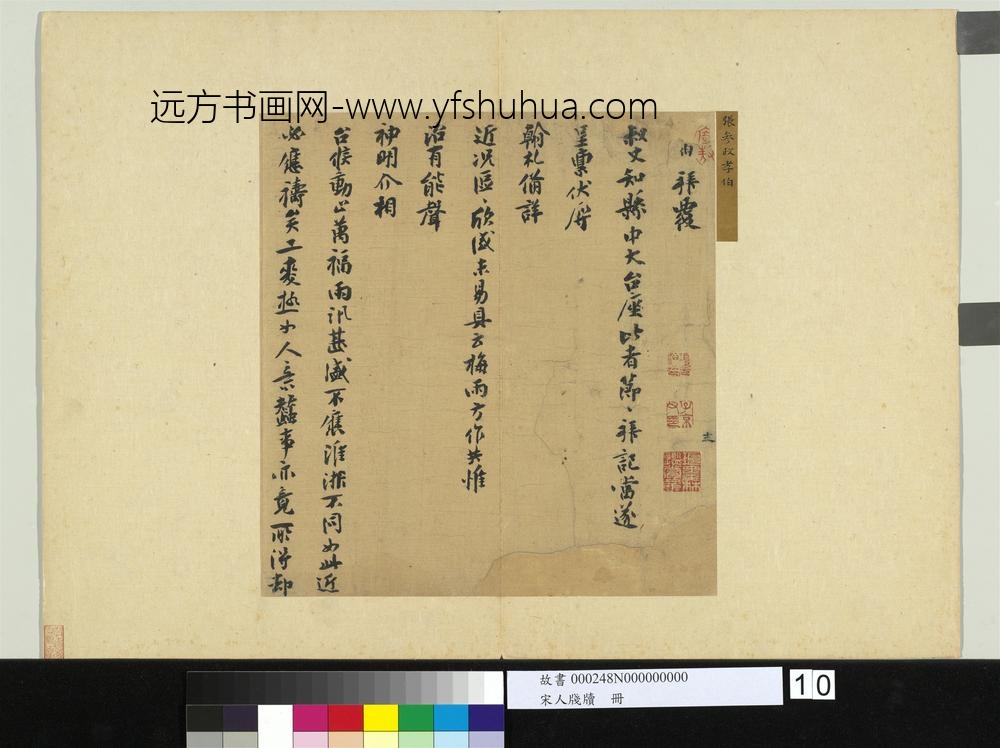 远方书画网-www.yfshuhua.com
張參政孝伯
叔丈知縣中大台座比者節〻拜記當遂
呈稟伏辱
翰札備詳
近况區〻欣感未易具云梅雨方作共惟
治有能聲
神明介相
台候動止萬福雨汛甚盛不應淮浙不同如此近
必應禱矣工麥極小人言蠶事亦竟所得却
故書 000248N000000000
宋人牋牘 冊
10